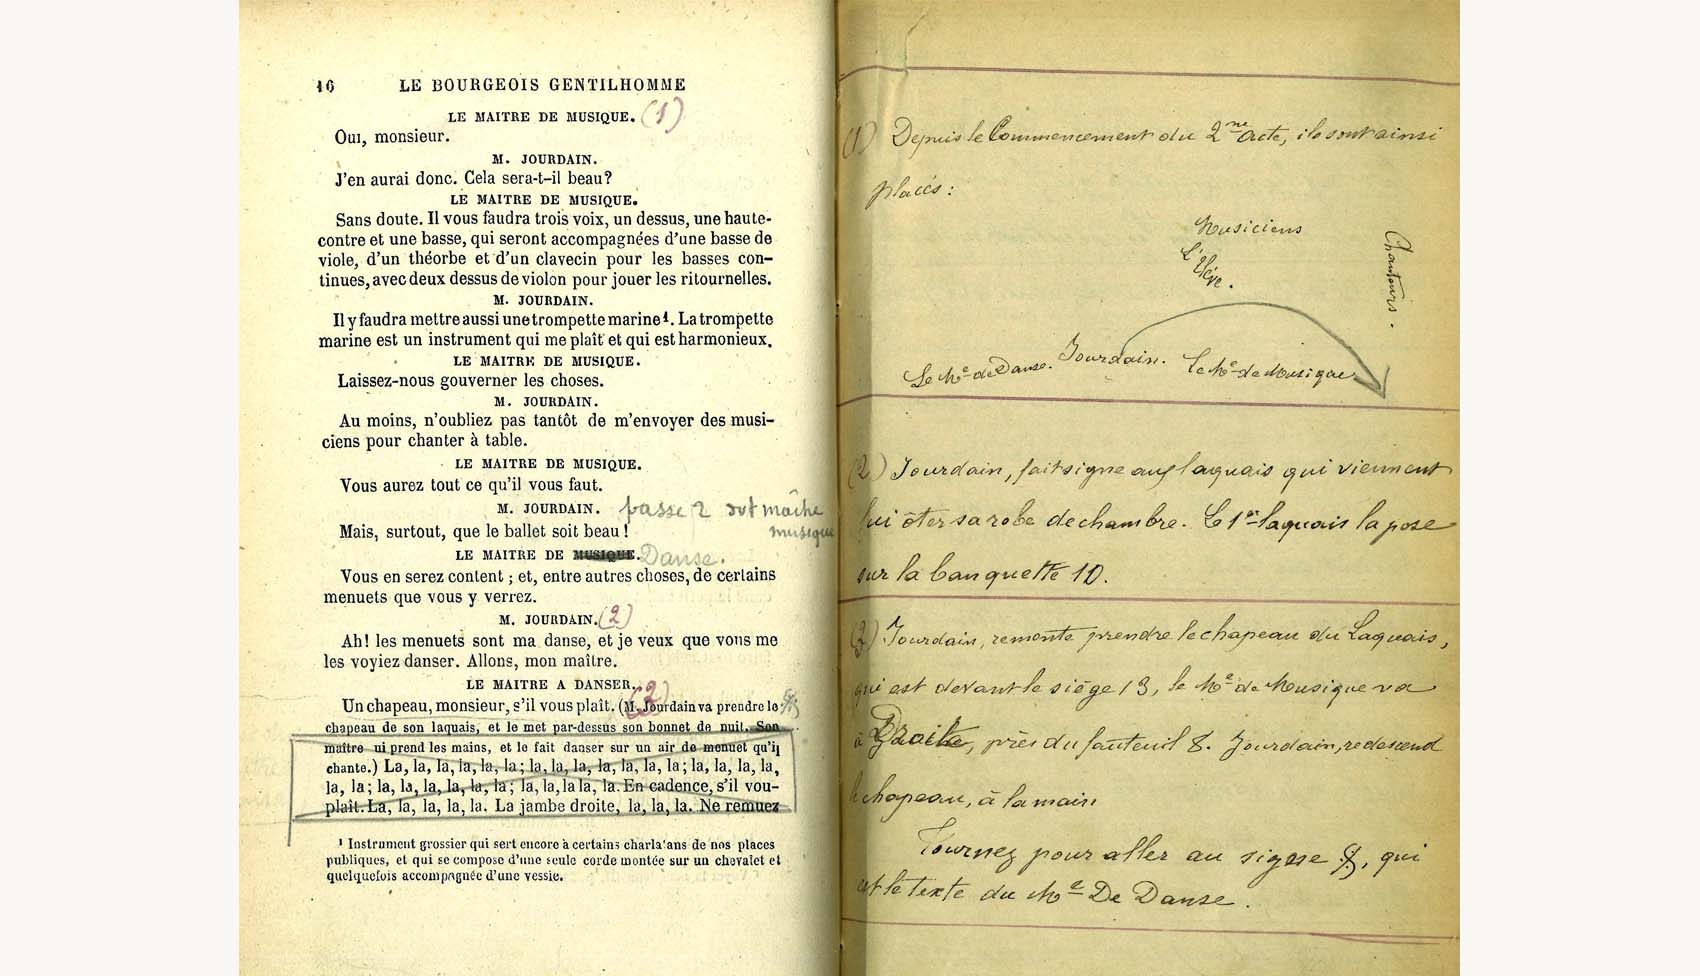 16 LE BOURGEOIS GENTILHOMME
LE MAITRE DE MUSIQUE. (1)
Oui, monsieur.
M. JOURDAIN.
J'en aurai donc. Cela sera-t-il beau?
LE MAITRE DE MUSIQUE.
Sans doute. Il vous faudra trois voix, un dessus, une haute-
contre et une basse, qui seront accompagnées d'une basse de
viole, d'un théorbe et d'un clavecin pour les basses con-
tinues, avec deux dessus de violon pour jouer les ritournelles.
M. JOURDAIN.
Il y faudra mettre aussi une trompette marine¹. La trompette
marine est un instrument qui me plaît et qui est harmonieux.
LE MAITRE DE MUSIQUE.
Laissez-nous gouverner les choses.
M. JOURDAIN.
Au moins, n'oubliez pas tantôt de m'envoyer des musi-
ciens pour chanter à table.
LE MAITRE DE MUSIQUE.
Vous aurez tout ce qu'il vous faut.
M. JOURDAIN. passe 2
musique
Mais, surtout, que le ballet soit beau!
LE MAITRE DE MUSIQUE. Danse.
Vous en serez content; et, entre autres choses, de certains
menuets que vous y verrez.
M. JOURDAIN. (2)
Ah! les menuets sont ma danse, et je veux que vous me
les voyiez danser. Allons, mon maître.
LE MAITRE A DANSER. (3)
Un chapeau, monsieur, s'il vous plaît. (M. Jourdain va prendre le
chapeau de son laquais, et le met par-dessus son bonnet de nuit. Son
maître ui prend les mains, et le fait danser sur un air de menuet qu'il
chante.) La, la, la, la, la, la; la, la, la, la, la, la, la; la, la, la, la,
la, la; la, la, la, la, la, la; la, la, la la, la. En cadence, s'il vou-
plaît. La, la, la, la, la. La jambe droite, la, la, la. Ne remuez
¹ Instrument grossier qui sert encore à certains charla'ans de nos places
publiques, et qui se compose d'une seule corde montée sur un chevalet et
quelquefois accompagnée d'une vessie.
(1) Depuis le Commencement du 2me acte, ils sont ainsi
placés :
Musiciens
L'Elève.
Chanteurs.
Jourdain.
Le Me de Danse. le Me de Musique
(2) Jourdain, fait signe aux laquais qui viennent
lui ôter sa robe de chambre. Le 1er laquais la pose
sur la banquette 10.
(3) Jourdain, remonte prendre le chapeau du Laquais,
qui est devant le siège 13, le Me de Musique va
à Droite, près du fauteuil 8. Jourdain, redescend
le chapeau, à la main
Tournez pour aller au signe, qui
est le texte du Me De Danse.